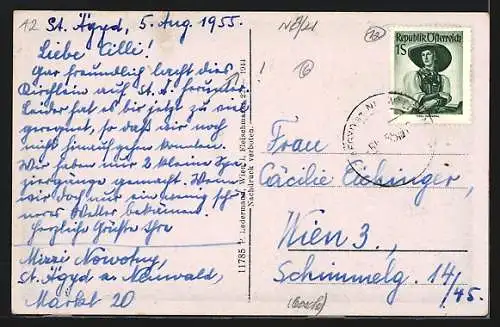 42 St. Ägyd, 5. Aug. 1955.
Liebe Cilli!
Gar freundlich lacht dies
Kirchlein auf St. Ä. herunter.
Leider hat es bis jetzt zu viel
geregnet, so daß wir noch
nicht hinaufgehen konnten.
Wir haben nur 2 kleine Spa-
ziergänge gemacht. Wenn
wir doch nur ein wenig schö-
neres Wetter bekämen.
Herzliche Grüße Ihre
Mizzi Nowotny,
St. Ägyd a. Neuwald,
Markt 20
11785 P. Ledermann, Wien I, Fleischmarkt 20 — 1944
Nachdruck verboten.
NÖ/Li
Republik Österreich
1 S
Frau
Cäcilie Eichinger,
Wien 3.,
Schimmelg. 14/
/45.